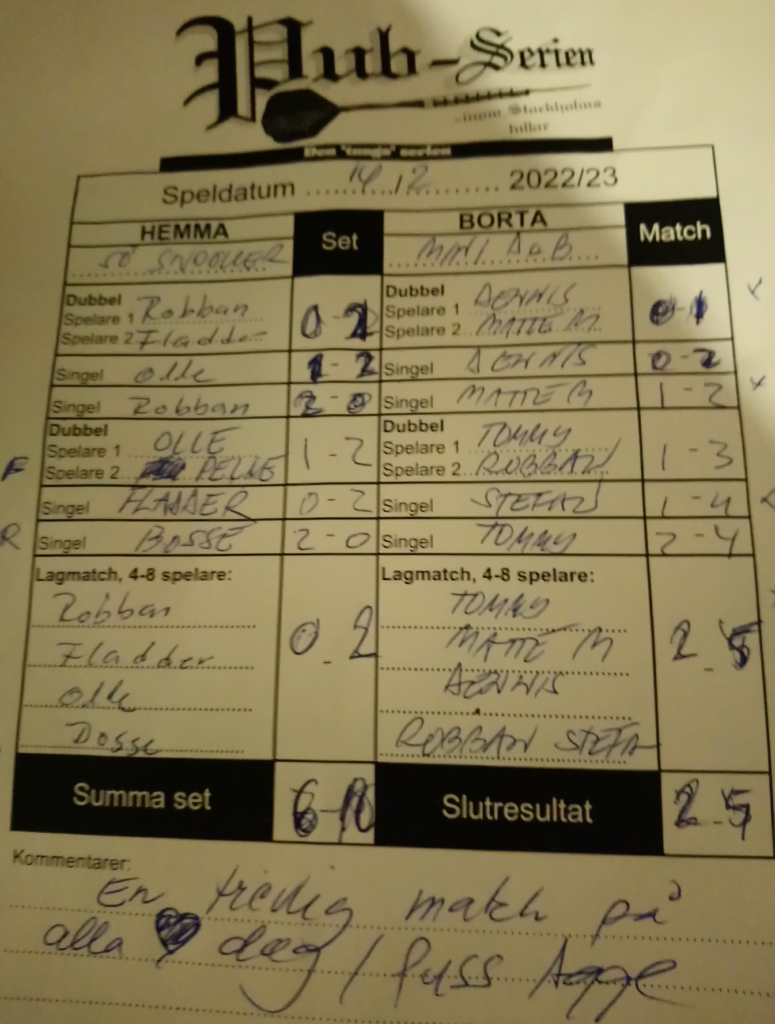 Pub-Serien
-inom Stockholms
tullar
Den "tunga" serien
Speldatum 14/2 2022/23
HEMMA Set BORTA Match
SÖ SNOOKER MINI DoB
Dubbel Dubbel
Spelare 1 Robban 0-2 Spelare 1 DENNIS 0-1
Spelare 2 Fladder Spelare 2 MATTE M
Singel Olle 1-2 Singel DENNIS 0-2
Singel Robban 2-0 Singel MATTE M 1-2
Dubbel Dubbel
Spelare 1 OLLE 1-2 Spelare 1 TOMMY 1-3
F Spelare 2 PELLE Spelare 2 ROBBAN
Singel FLADDER 0-2 Singel STEFAN 1-4
R Singel BOSSE 2-0 Singel TOMMY 2-4
Lagmatch, 4-8 spelare: Lagmatch, 4-8 spelare:
Robban 0-2 TOMMY 2-5
Fladder MATTE M
Olle DENNIS
Bosse ROBBAN STEFA
Summa set 6-10 Slutresultat 2-5
Kommentarer:
En trevlig match på
alla ♥ dag / Puss